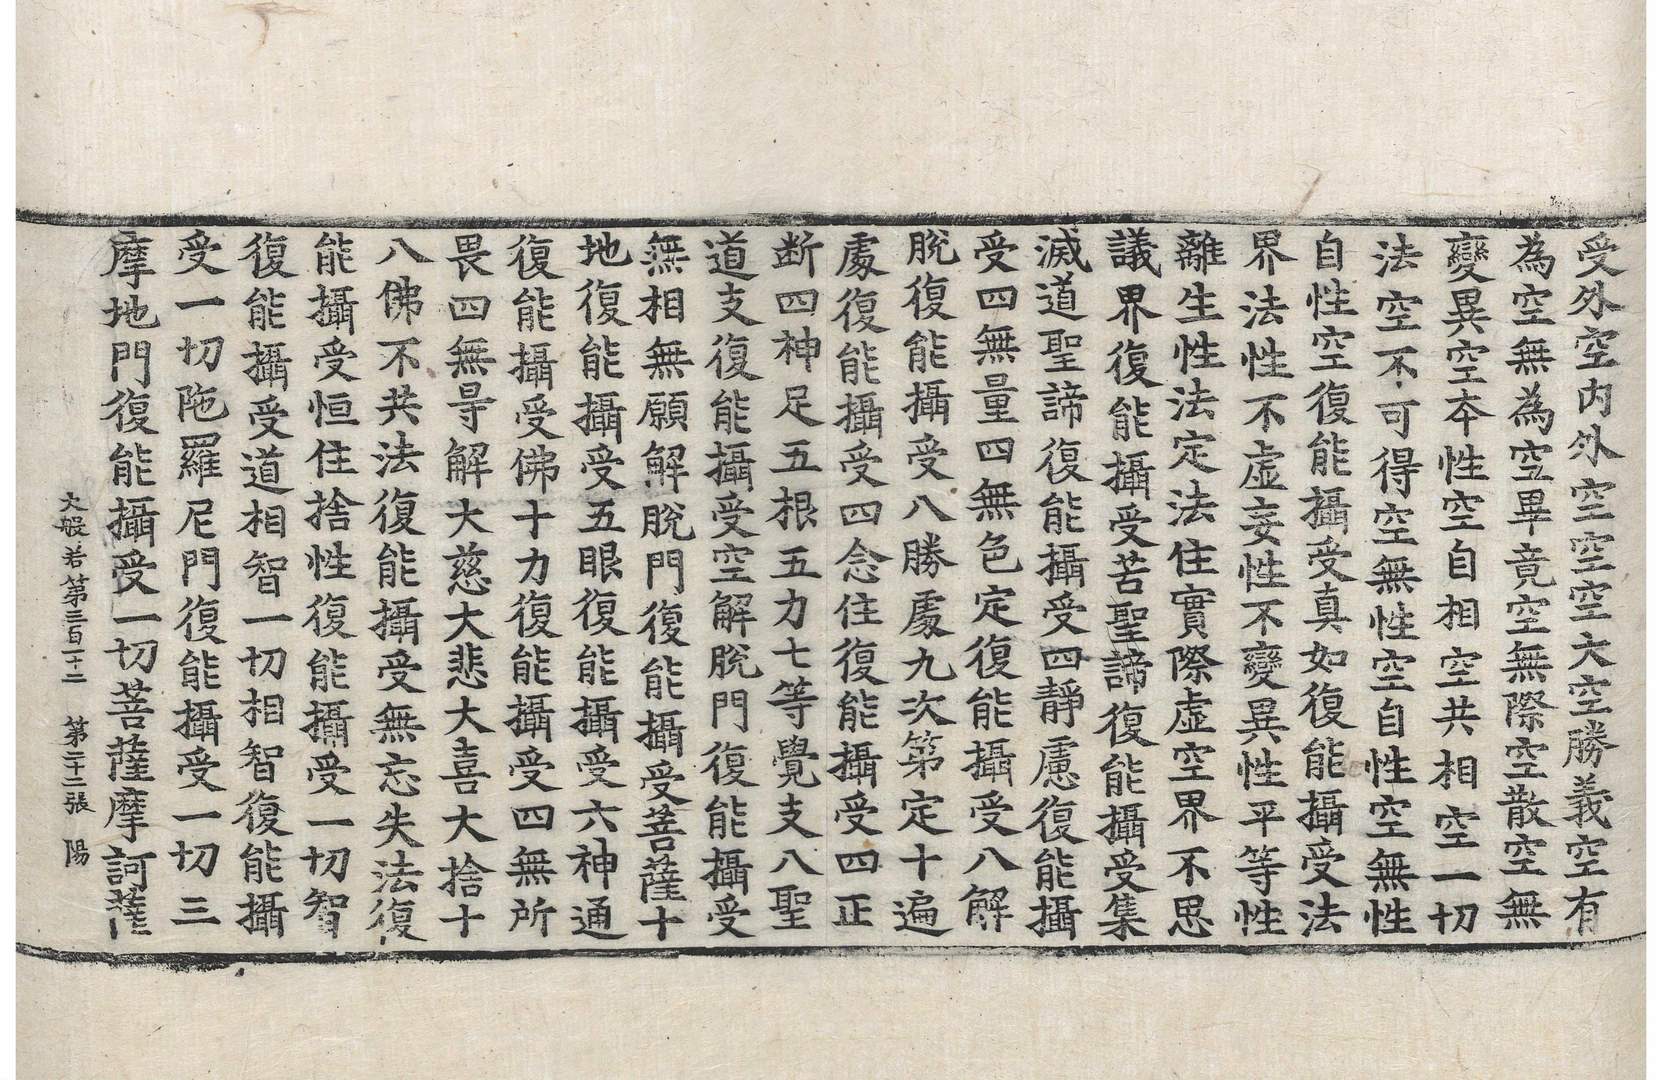 受外空内外空空空大空勝義空有
為空無為空畢竟空無際空散空無
變異空本性空自相空共相空一切
法空不可得空無性空自性空無性
自性空復能攝受真如復能攝受法
界法性不虛妄性不變異性平等性
離生性法定法住實際虛空界不思
議界復能攝受苦聖諦復能攝受集
滅道聖諦復能攝受四靜慮復能攝
受四無量四無色定復能攝受八解
脫復能攝受八勝處九次第定十遍
處復能攝受四念住復能攝受四正
断四神足五根五力七等覺支八聖
道支復能攝受空解脫門復能攝受
無相無願解脫門復能攝受菩薩十
地復能攝受五眼復能攝受六神通
復能攝受佛十力復能攝受四無所
畏四無㝵解大慈大悲大喜大捨十
八佛不共法復能攝受無忘失法復
能攝受恒住捨性復能攝受一切智
復能攝受道相智一切相智復能攝
受一切陁羅尼門復能攝受一切三
摩地門復能攝受一切菩薩摩訶薩
大般若第三百二十二 第二十二張 陽